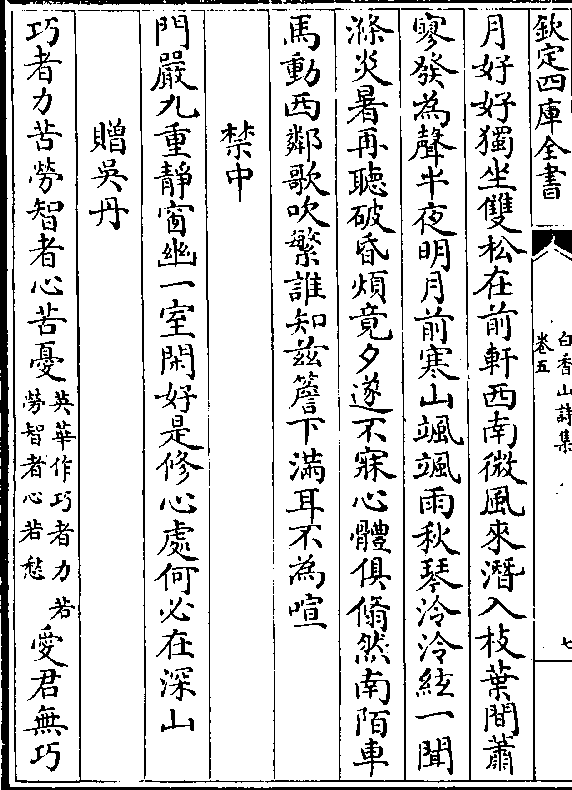 欽定四庫全書
白香山詩集
卷五
七
月好好獨坐雙松在前軒西南微風來潛入枝葉間蕭
寥發為聲半夜明月前寒山颯颯雨秋琴泠泠絃一聞
滌炎暑再聽破昏煩竟夕遂不寐心體俱翛然南陌車
馬動西鄰歌吹繁誰知茲簷下滿耳不為喧
禁中
門嚴九重靜窗幽一室閑好是修心處何必在深山
贈吳丹
巧者力苦勞智者心苦憂英華作巧者力若勞智者心若愁愛君無巧